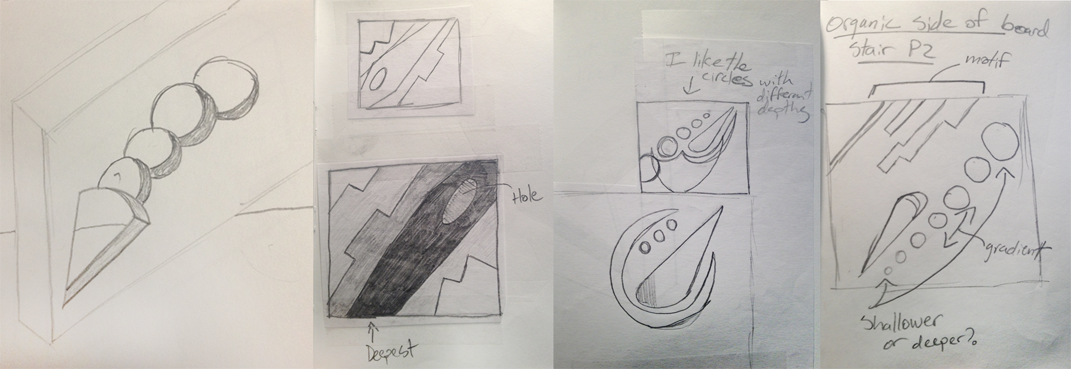 Hole
Deepest
I like the
circles with
different
depths
Organic side of board
Stair P2
motif
gradient
Shallower
or deeper?